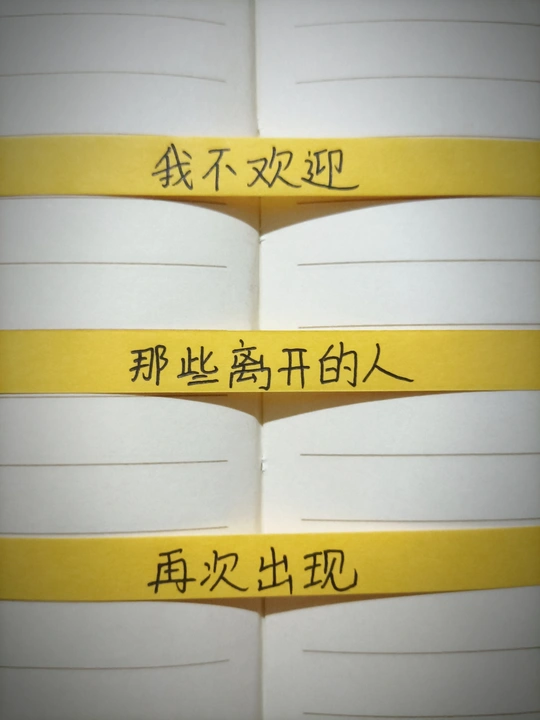 我不欢迎
那些离开的人
再次出现